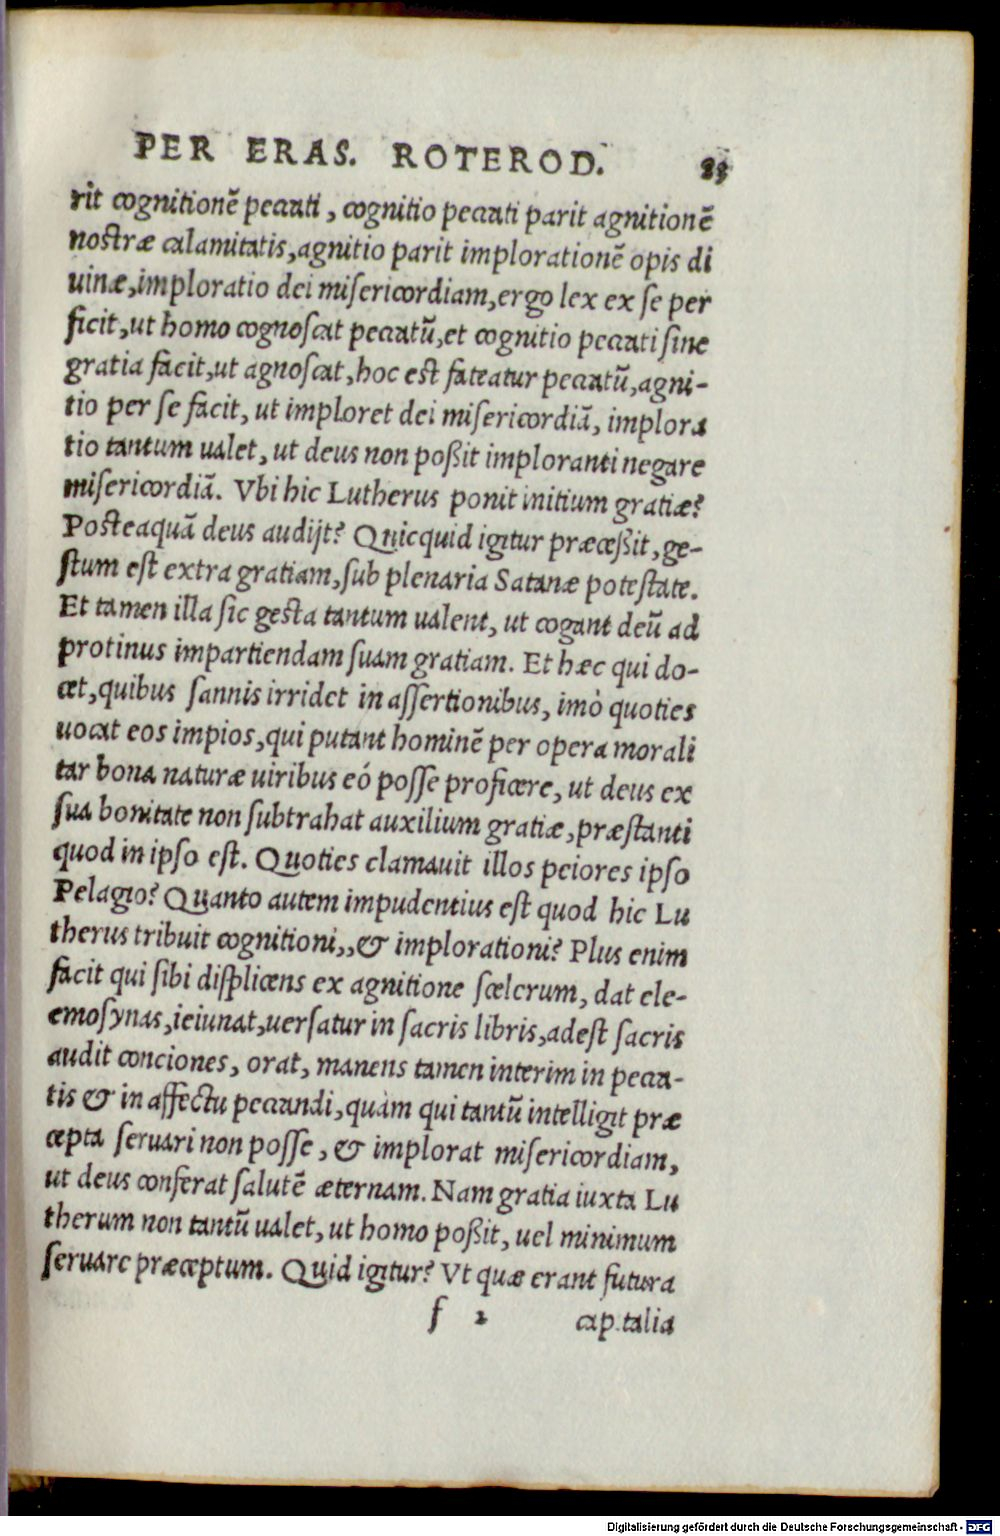 PER ERAS. ROTEROD. 83
rit cognitionē peccati, cognitio peccati parit agnitionē
nostræ calamitatis, agnitio parit implorationē opis di
uinæ, imploratio dei miſericordiam, ergo lex ex ſe per
ficit, ut homo cognoſcat peccatū, et cognitio peccati ſine
gratia facit, ut agnoſcat, hoc est fateatur peccatū, agni-
tio per ſe facit, ut imploret dei miſericordiā, implora
tio tantum ualet, ut deus non poßit imploranti negare
miſericordiā. Vbi hic Lutherus ponit initium gratiæ?
Posteaquā deus audijt? Quicquid igitur præceßit, ge-
ſtum est extra gratiam, ſub plenaria Satanæ potestate.
Et tamen illa ſic gesta tantum ualent, ut cogant deū ad
protinus impartiendam ſuam gratiam. Et hæc qui do-
cet, quibus ſannis irridet in aſſertionibus, imò quoties
uocat eos impios, qui putant hominē per opera morali
tar bona naturæ uiribus eó poſſe proficere, ut deus ex
ſua bonitate non ſubtrahat auxilium gratiæ, præstanti
quod in ipſo est. Quoties clamauit illos peiores ipſo
Pelagio? Quanto autem impudentius est quod hic Lu
therus tribuit cognitioni,, & implorationi? Plus enim
facit qui ſibi diſplicens ex agnitione ſcelerum, dat ele-
emoſynas, ieiunat, uerſatur in ſacris libris, adest ſacris
audit conciones, orat, manens tamen interim in pecca-
tis & in affectu peccandi, quàm qui tantū intelligit præ
cepta ſeruari non poſſe, & implorat miſericordiam,
ut deus conferat ſalutē æternam. Nam gratia iuxta Lu
therum non tantū ualet, ut homo poßit, uel minimum
ſeruare præceptum. Quid igitur? Vt quæ erant futura
f 2 cap talia
Digitalisierung gefördert durch die Deutsche Forschungsgemeinschaft - DFG